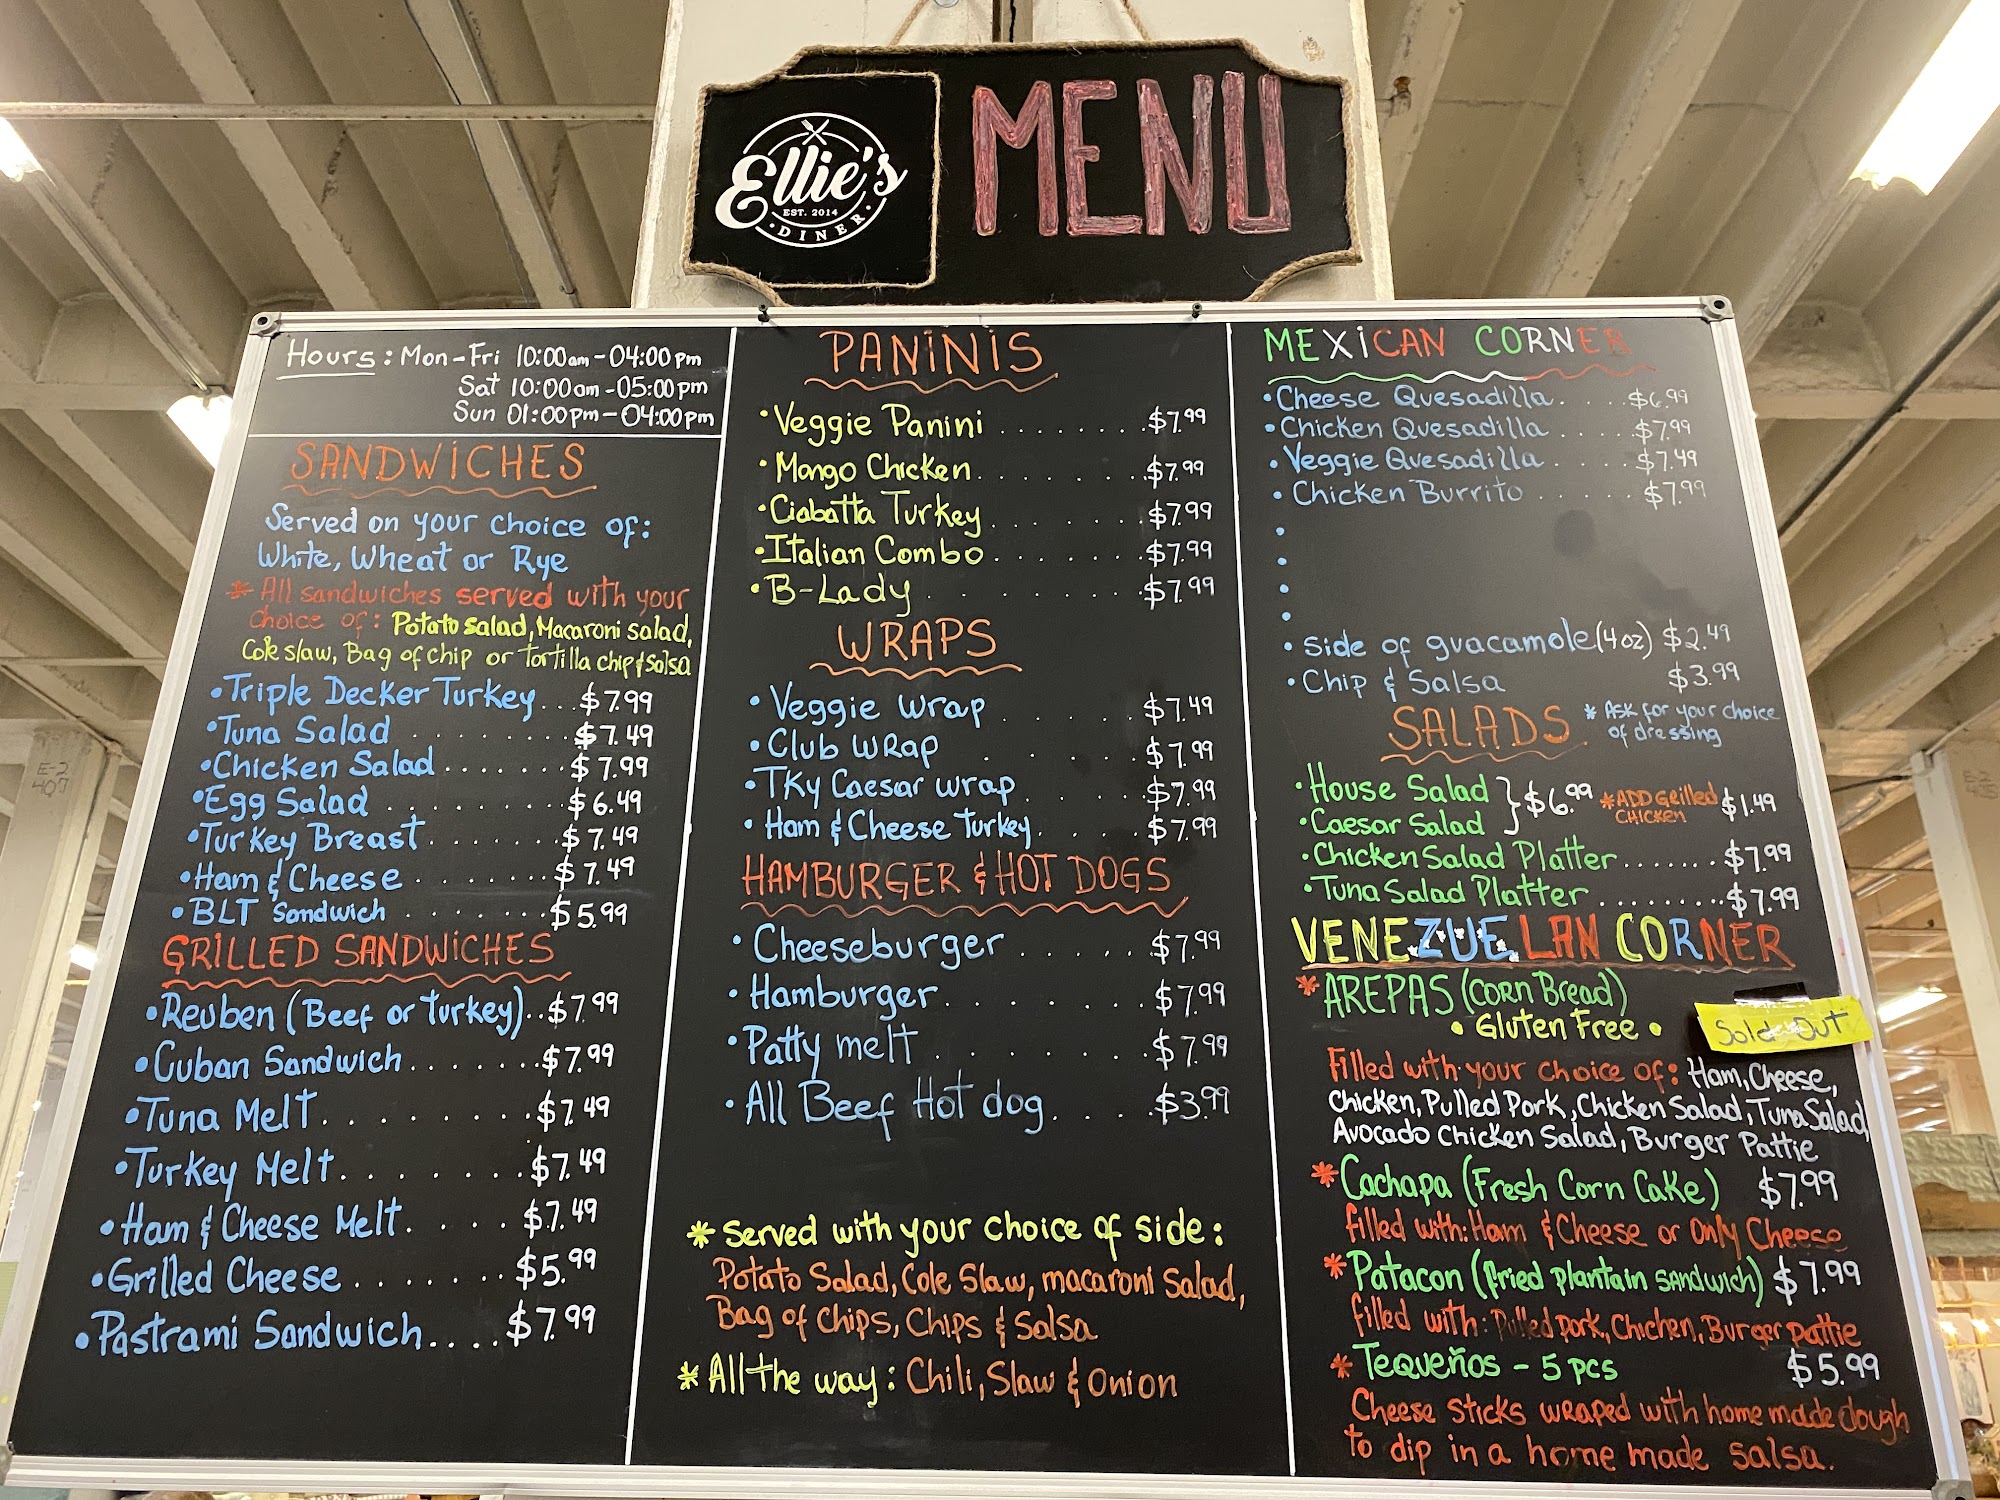 Ellie's
EST. 2014
DINER
MENU
Hours: Mon-Fri 10:00am-04:00pm
Sat 10:00am-05:00pm
Sun 01:00pm-04:00pm
SANDWICHES
Served on your choice of:
White, Wheat or Rye
* All sandwiches served with your
choice of: Potato salad, Macaroni salad,
Cole slaw, Bag of chip or tortilla chip & salsa
• Triple Decker Turkey... $7.99
• Tuna Salad ........ $7.49
• Chicken Salad ....... $7.99
• Egg Salad ........ $6.49
• Turkey Breast ....... $7.49
• Ham & Cheese ........ $7.49
• BLT Sandwich ........ $5.99
GRILLED SANDWICHES
• Reuben (Beef or turkey).. $7.99
• Cuban Sandwich ....... $7.99
• Tuna Melt ........ $7.49
• Turkey Melt ........ $7.49
• Ham & Cheese Melt ..... $7.49
• Grilled Cheese ....... $5.99
• Pastrami Sandwich .... $7.99
PANINIS
• Veggie Panini ........ $7.99
• Mango Chicken ....... $7.99
• Ciabatta Turkey ....... $7.99
• Italian Combo ....... $7.99
• B-Lady ........ $7.99
WRAPS
• Veggie Wrap ...... $7.49
• Club WRap ..... $7.99
• TKy Caesar wrap ..... $7.99
• Ham & Cheese Turkey ..... $7.99
HAMBURGER & HOT DOGS
• Cheeseburger ...... $7.99
• Hamburger ........ $7.99
• Patty melt ........ $7.99
• All Beef Hot dog ..... $3.99
* Served with your choice of side:
Potato Salad, Cole Slaw, macaroni Salad,
Bag of Chips, Chips & Salsa
* All the way: Chili, Slaw & Onion
MEXICAN CORNER
• Cheese Quesadilla .... $6.99
• Chicken Quesadilla ..... $7.99
• Veggie Quesadilla ..... $7.49
• Chicken Burrito ...... $7.99
•
•
•
•
• Side of guacamole (4oz) $2.49
• Chip & Salsa $3.99
SALADS * Ask for your choice
of dressing
• House Salad } $6.99 * ADD Grilled $1.49
• Caesar Salad CHICKEN
• Chicken Salad Platter ....... $7.99
• Tuna Salad Platter ......... $7.99
VENEZUELAN CORNER
* AREPAS (CORN Bread)
• Gluten Free •
Sold Out
Filled with your choice of: Ham, Cheese,
Chicken, Pulled Pork, Chicken Salad, Tuna Salad,
Avocado Chicken Salad, Burger Pattie
* Cachapa (Fresh Corn Cake) $7.99
filled with: Ham & Cheese or Only Cheese
* Patacon (fried plantain SANDWich) $7.99
filled with: Pulled pork, Chichen, Burger pattie
* Tequeños - 5 pcs $5.99
Cheese Sticks wraped with home made dough
to dip in a home made salsa.